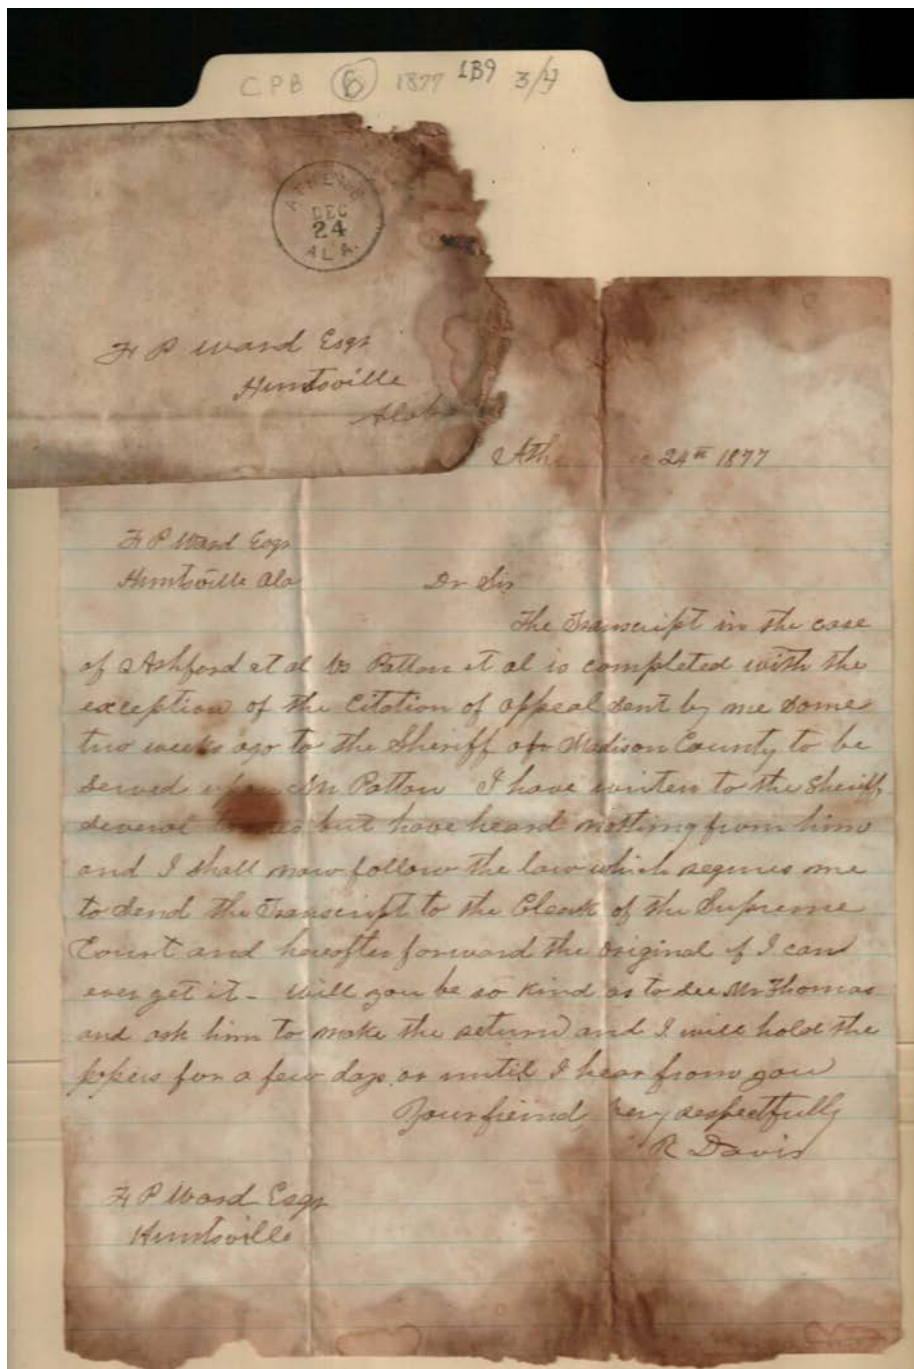 CPB B 1877 1B9 3/4
ATHENS
DEC
24
ALA.
F P Ward Esqr
Huntsville
Alab
Ath 24th 1877
F P Ward Esqr
Huntsville Ala
Dr Sir
The Transcript in the case
of Ashford et al vs Patton et al is completed with the
exception of the Citation of appeal sent by me some
two weeks ago to the Sheriff of Madison County to be
served Mr Patton I have writen to the Sheriff
several but have heard nothing from him
and I shall now follow the law which requires me
to send the Transcript to the Clerk of the Supreme
Court and hereafter forward the original if I can
ever get it - Will you be so kind as to see Mr Thomas
and ask him to make the return and I will hold the
papers for a few days or until I hear from you
Your fiend very respectfully
R Davis
F P Ward Esqr
Huntsville